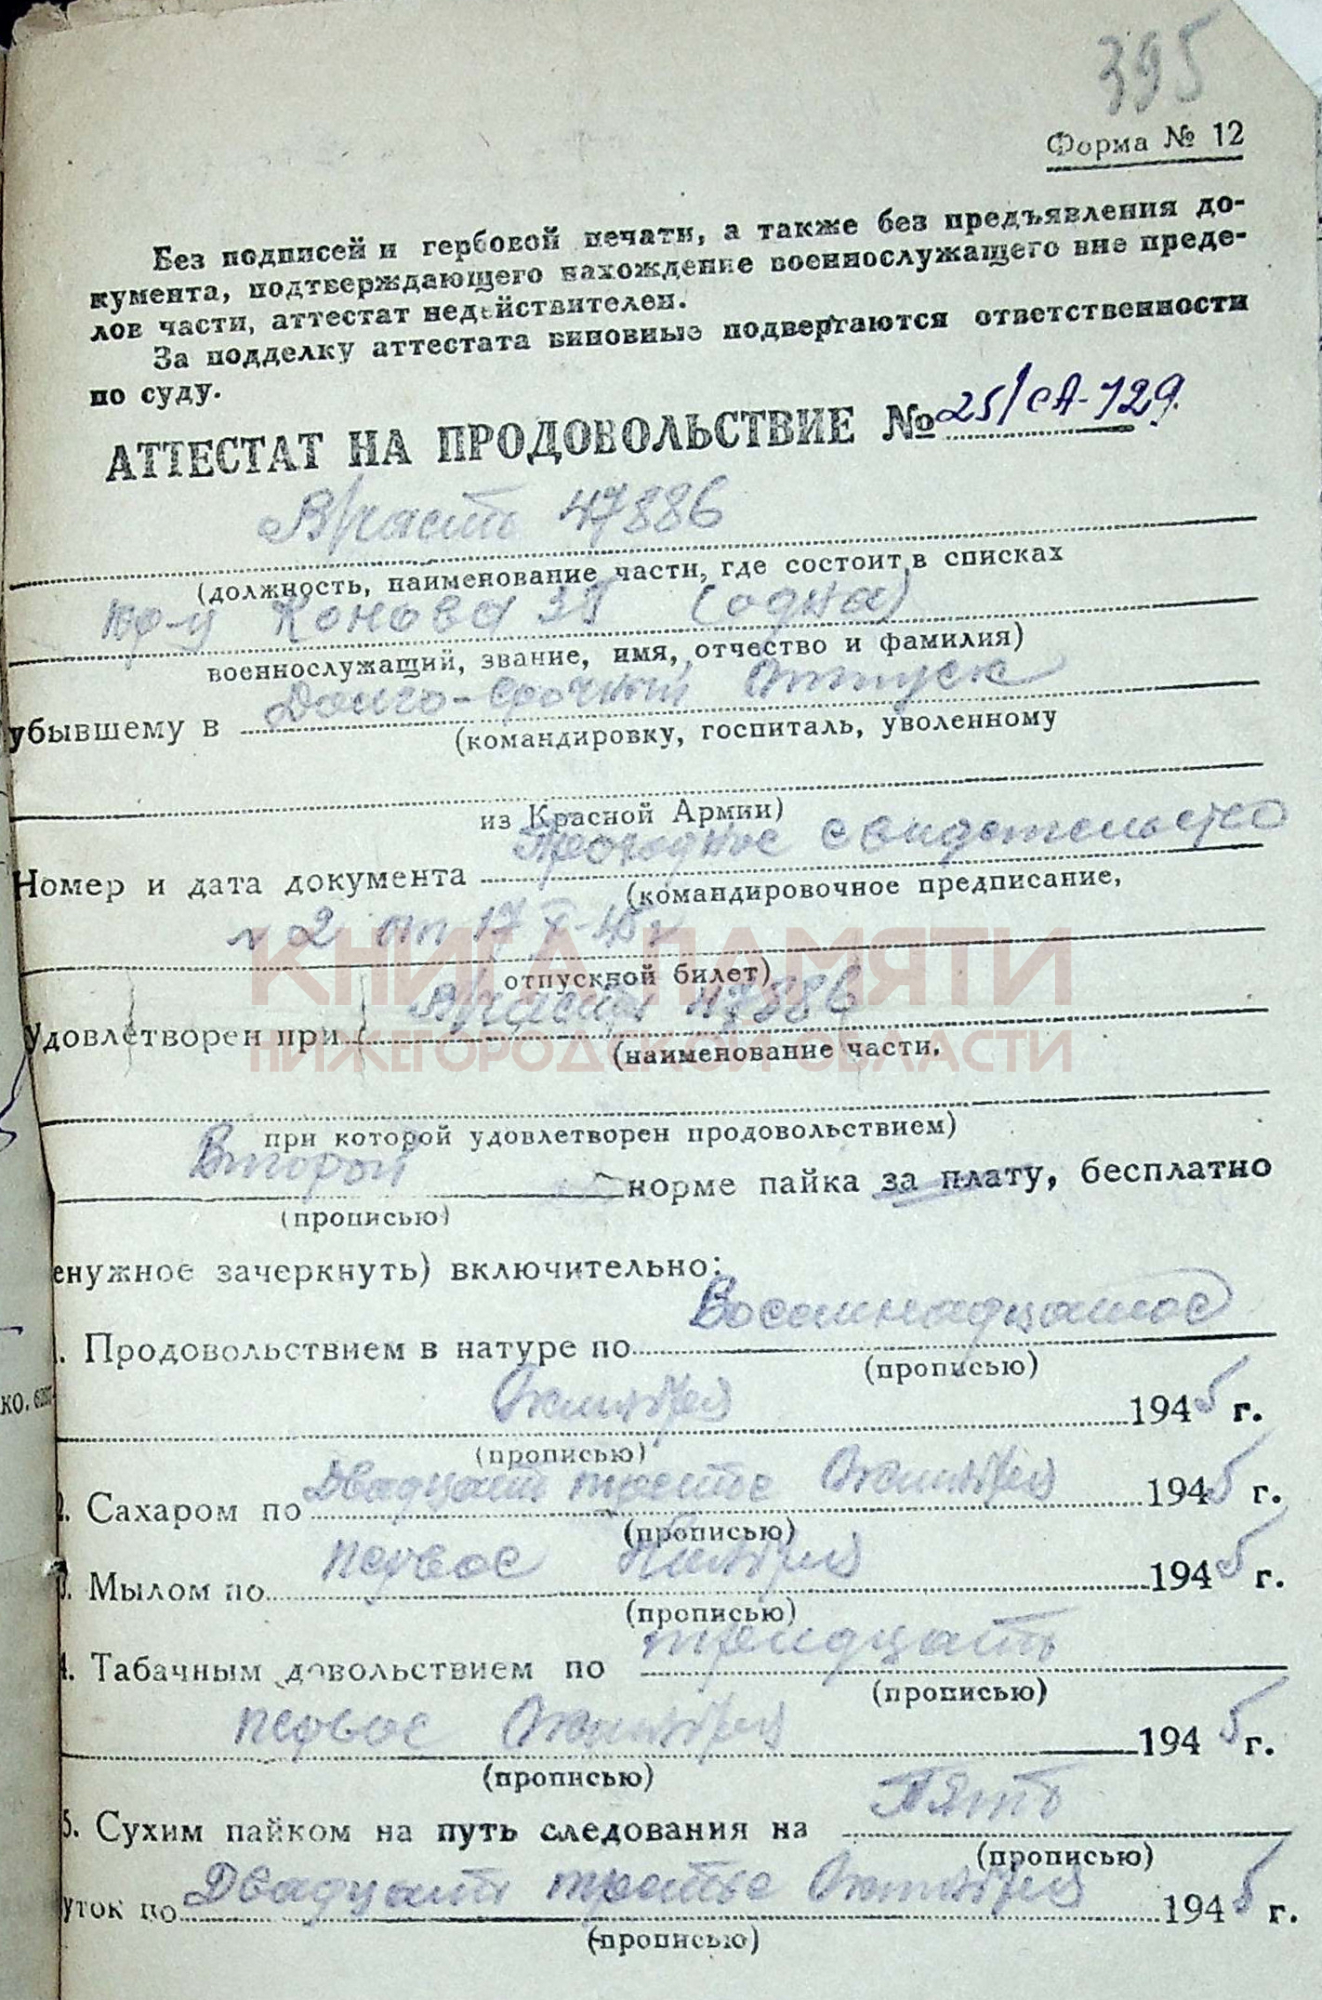 395
Форма № 12
Без подписей и гербовой печати, а также без предъявления до-
кумента, подтверждающего нахождение военнослужащего вне преде-
лов части, аттестат недействителен.
За подделку аттестата виновные подвергаются ответственности
по суду.
АТТЕСТАТ НА ПРОДОВОЛЬСТВИЕ № 25/СА-729.
В/часть 47886
(должность, наименование части, где состоит в списках
Кр-ц Конова ЗП (одна)
военнослужащий, звание, имя, отчество и фамилия)
убывшему в Долго-срочный Отпуск
(командировку, госпиталь, уволенному
из Красной Армии)
Номер и дата документа Проходное свидетельство
(командировочное предписание,
№ 2 от 17 X-45 г
отпускной билет)
Удовлетворен при В/части 47886
(наименование части,
при которой удовлетворен продовольствием)
Второй норме пайка за плату, бесплатно
(прописью)
енужное зачеркнуть) включительно:
1. Продовольствием в натуре по Восемнадцатое
(прописью)
Октября 1945 г.
(прописью)
2. Сахаром по Двадцать третье Октября 1945 г.
(прописью)
3. Мылом по первое Ноября 1945 г.
(прописью)
4. Табачным довольствием по тридцать
(прописью)
первое Октября 1945 г.
(прописью)
5. Сухим пайком на путь следования на Пять
(прописью)
уток по Двадцать третье Октября 1945 г.
(прописью)
КНИГА ПАМЯТИ
НИЖЕГОРОДСКОЙ ОБЛАСТИ